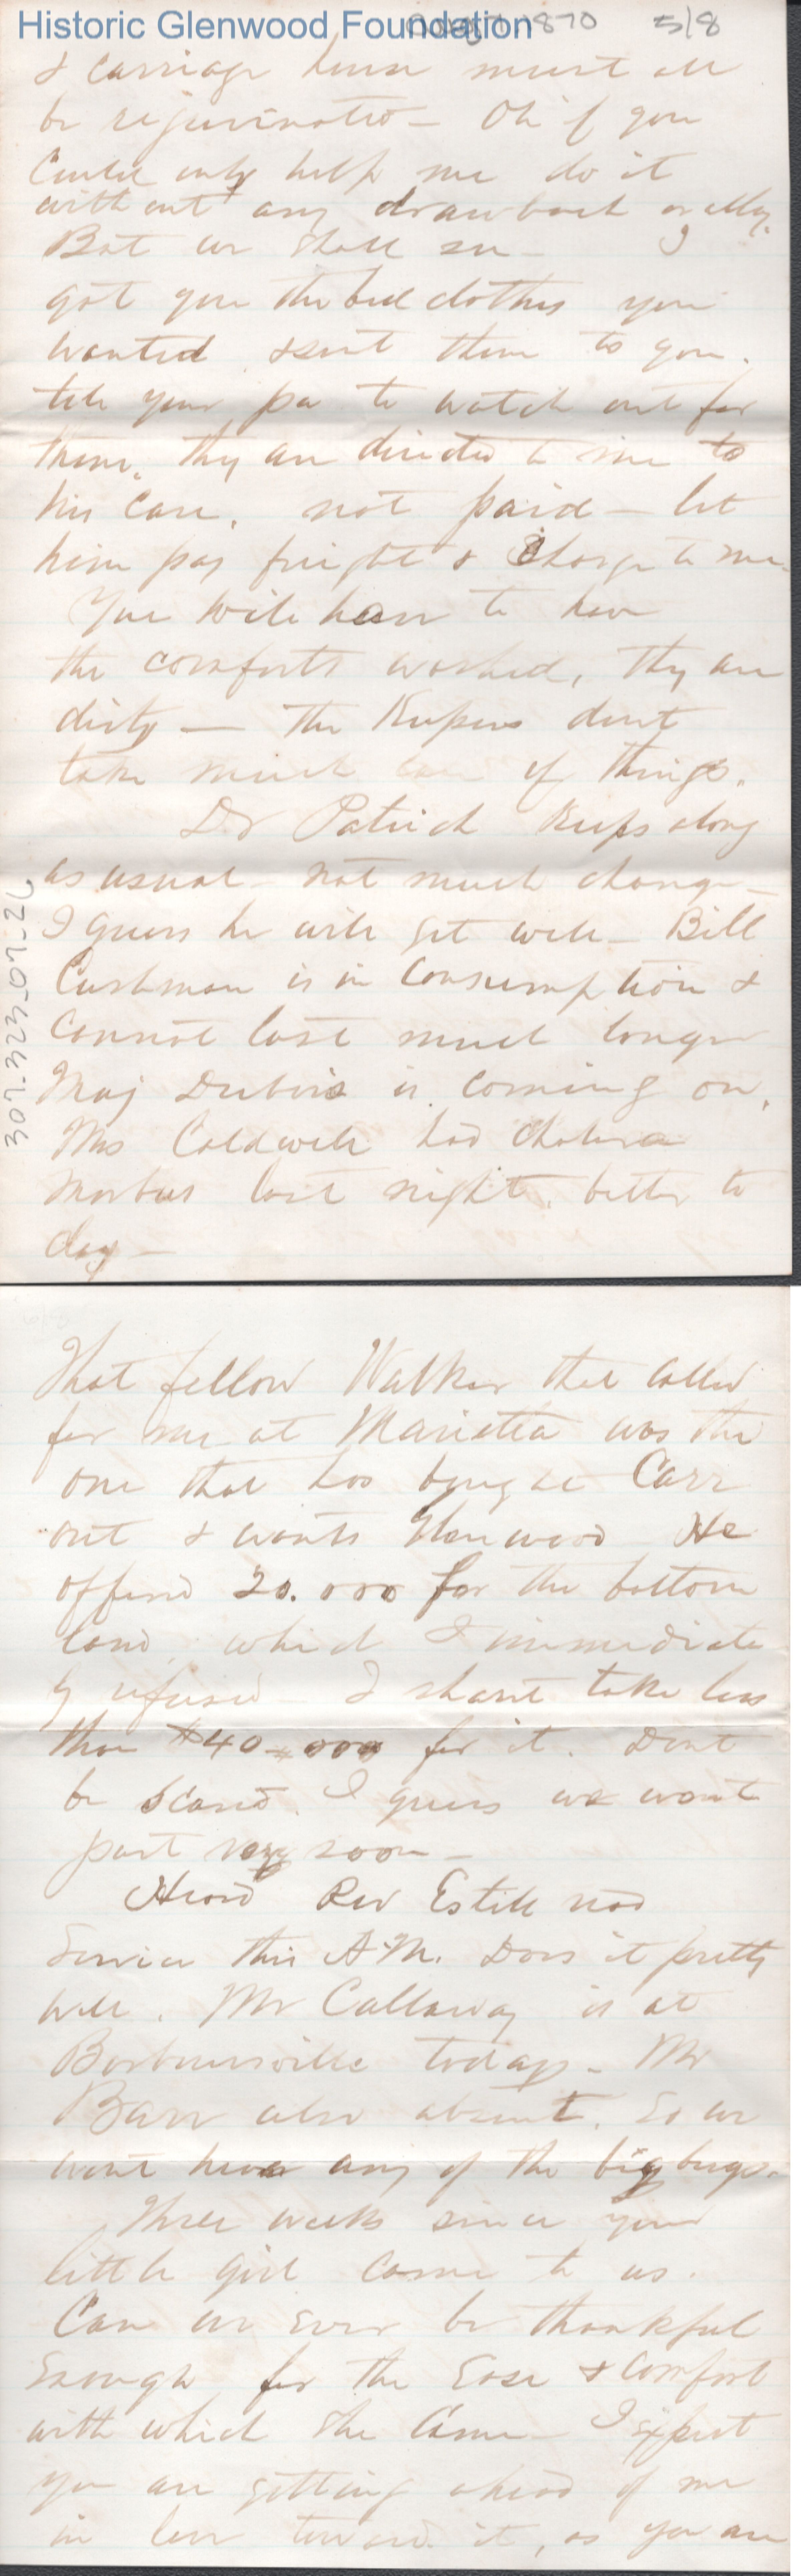 Historic Glenwood Foundation
1870 5/8
& carriage house must all
be rejuvinated - Oh if you
Could only help me do it
without any drawback or
But we shall see - I
got you the bed clothes you
wanted & sent them to you.
tell your pa to watch out for
them. They are directed to me to
his care, not paid - let
him pay freight & Charge to me.
You will have to have
the comforts washed, They are
dirty - The Rupins dont
take much care of things.
Dr Patrick keeps along
as usual - not much change -
I guess he will get well - Bill
Cushman is in Consumption &
Cannot last much longer
Maj Dubois is coming on.
Mrs Caldwell had cholera
morbus last night. better to
day -
307.323_07_26
6/8
That fellow Walker that called
for me at Marietta was the
one that has bought Carr
out & wants Glenwood He
offered 20.000 for the bottom
land, which I immediate
ly refused - I shant take less
than $40.000 for it. Dont
be scared. I guess we wont
part very soon -
Heard Rev Estill read
Service this A.M. Does it pretty
well. Mr Callaway is at
Barboursville today - Mr
Barr also absent. So we
wont have any of the big bugs.
Three weeks since your
little girl came to us.
Can we ever be thankful
Enough for the Ease & Comfort
with which she came - I expect
you are getting ahead of me
in love toward it, as you are